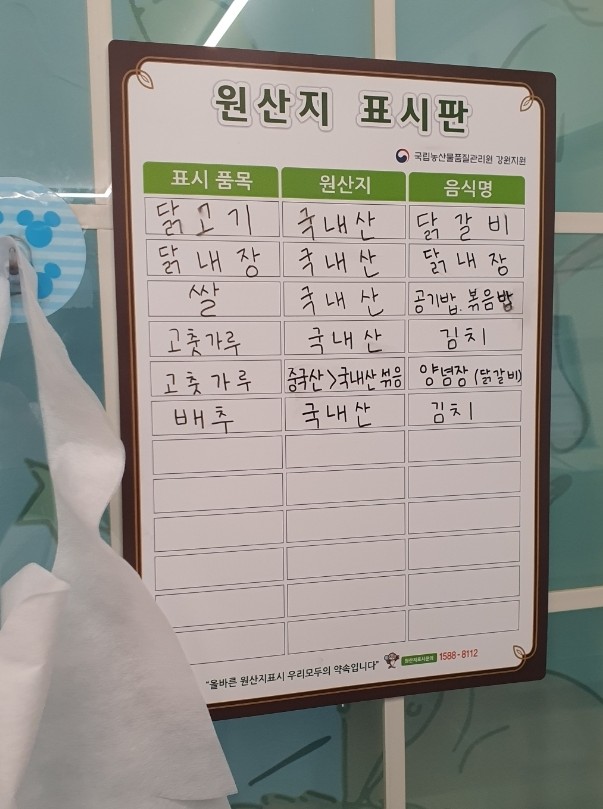 원산지 표시판
국립농산물품질관리원 강원지원
표시 품목 원산지 음식명
닭고기 국내산 닭갈비
닭내장 국내산 닭내장
쌀 국내산 공기밥, 볶음밥
고춧가루 국내산 김치
고춧가루 중국산>국내산 섞음 양념장 (닭갈비)
배추 국내산 김치
"올바른 원산지표시 우리모두의 약속입니다" 원산지표시문의 1588-8112